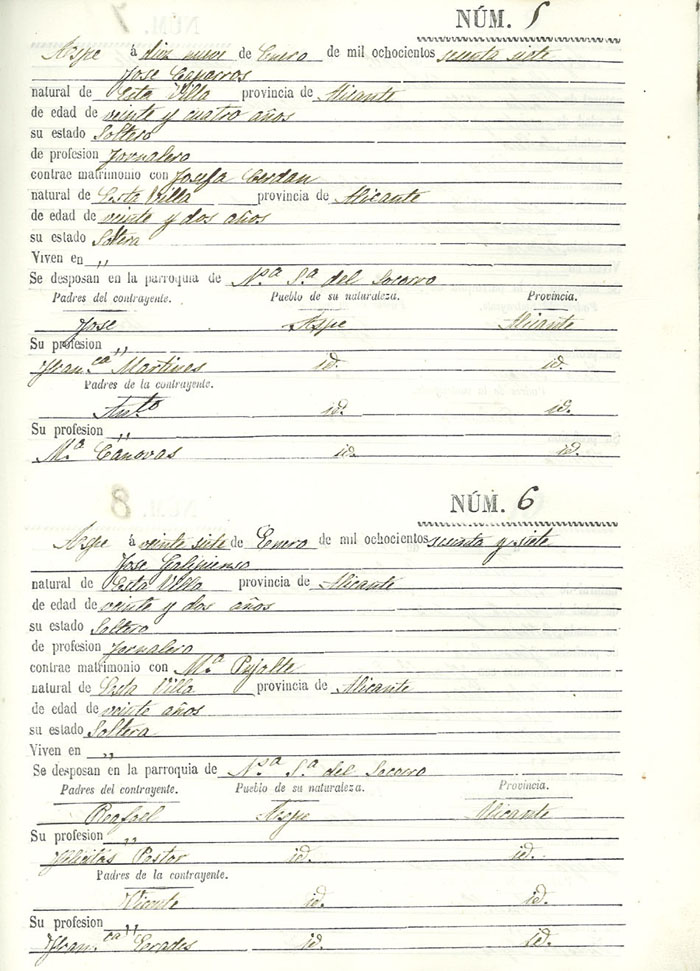 NÚM. 5
Aspe á diez nueve de Enero de mil ochocientos sesenta siete
Jose Caparros
natural de Esta Villa provincia de Alicante
de edad de veinte y cuatro años
su estado Soltero
de profesion Jornalero
contrae matrimonio con Josefa Cerdan
natural de Esta Villa provincia de Alicante
de edad de veinte y dos años
su estado Soltera
Viven en "
Se desposan en la parroquia de N.ª S.ª del Socorro
Padres del contrayente. Pueblo de su naturaleza. Provincia.
Jose Aspe Alicante
Su profesion "
Fran.ca Martines id. id.
Padres de la contrayente.
Ant.o id. id.
Su profesion "
M.ª Canovas id. id.
NÚM. 6
Aspe á veinte siete de Enero de mil ochocientos sesenta y siete
Jose
natural de Esta Villa provincia de Alicante
de edad de veinte y dos años
su estado Soltero
de profesion Jornalero
contrae matrimonio con M.ª Pujolte
natural de Esta Villa provincia de Alicante
de edad de veinte años
su estado Soltera
Viven en "
Se desposan en la parroquia de N.ª S.ª del Socorro
Padres del contrayente. Pueblo de su naturaleza. Provincia.
Rafael Aspe Alicante
Su profesion "
Felicitas Pastor id. id.
Padres de la contrayente.
Vicente id. id.
Su profesion "
Fran.ca Erades id. id.